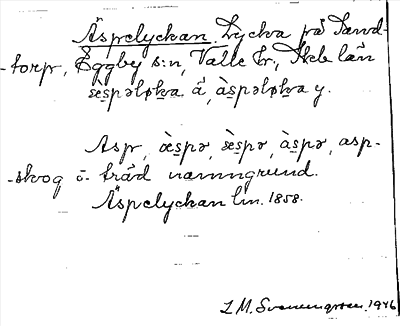 Äspelyckan. Lycka på Sand-
-torp, Eggby s:n, Valle hr, Skb län
sèspəløka. å, àspəløka y.
Asp, àspə, sèspə, àspə, asp-
-skog o. träd namngrund.
Äspelyckan lm. 1858.
L M. 1946